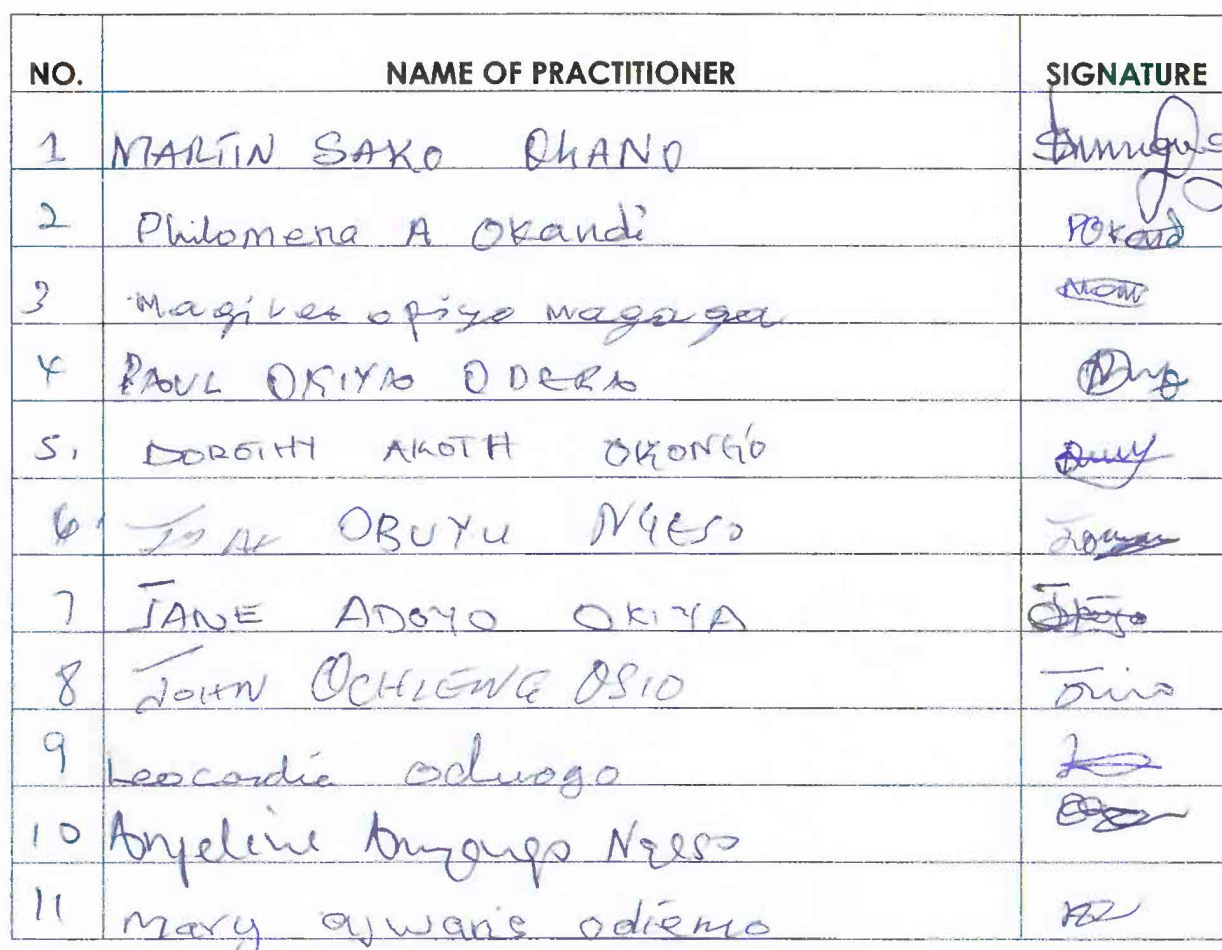 NO. NAME OF PRACTITIONER SIGNATURE
1 MARTIN SAKO OKANO
2 Philomena A Okandi POkand
3 opiyo magaga
4 PAUL OKIYO ODERO
5. DOROTHY AKOTH OKONGO
6. OBUYU NGESO
7 JANE ADOYO OKIYA
8 JOHN OCHIENG OSIO
9 Leocardia oduogo
10 Anyango Ngeso
11 Mary odiemo